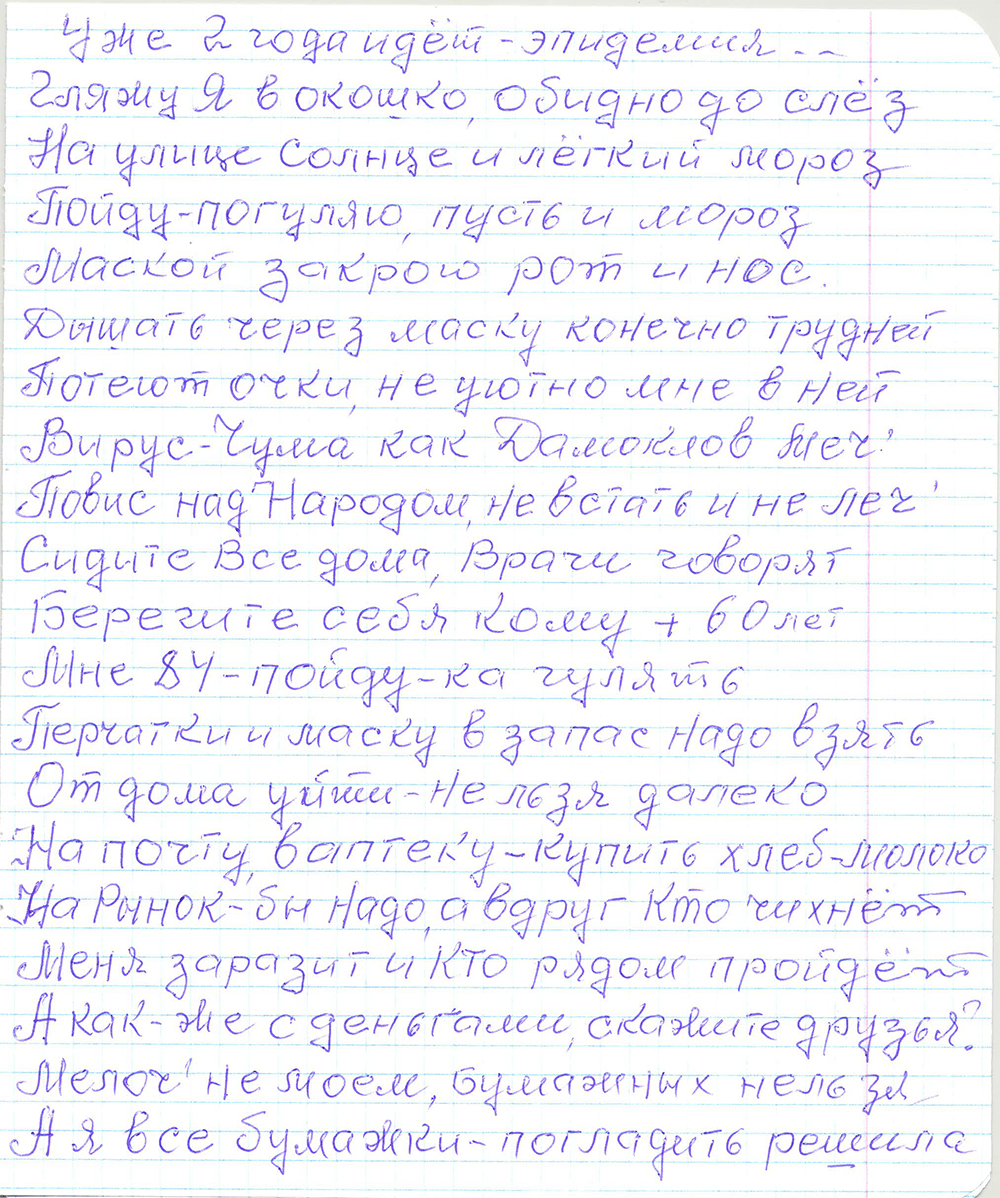 Уже 2 года идёт - эпидемия --
Гляжу Я в окошко, обидно до слёз
На улице Солнце и лёгкий мороз
Пойду-погуляю, пусть и мороз
Маской закрою рот и нос.
Дышать через маску конечно трудней
Потеют очки, не уютно мне в ней
Вирус-Чума как Дамоклов Меч'
Повис над Народом, не встать и не леч'
Сидите Все дома, Врачи говорят
Берегите себя кому + 60 лет
Мне 84 - пойду-ка гулять
Перчатки и маску в запас надо взять
От дома уйти - нельзя далеко
На почту, в аптеку - купить хлеб-молоко
На Рынок-бы надо, а вдруг Кто чихнёт
Меня заразит и Кто рядом пройдёт
А как-же с деньгами, скажите друзья?
Мелоч' не моем, бумажных нельзя
А я все бумажки - погладить решила